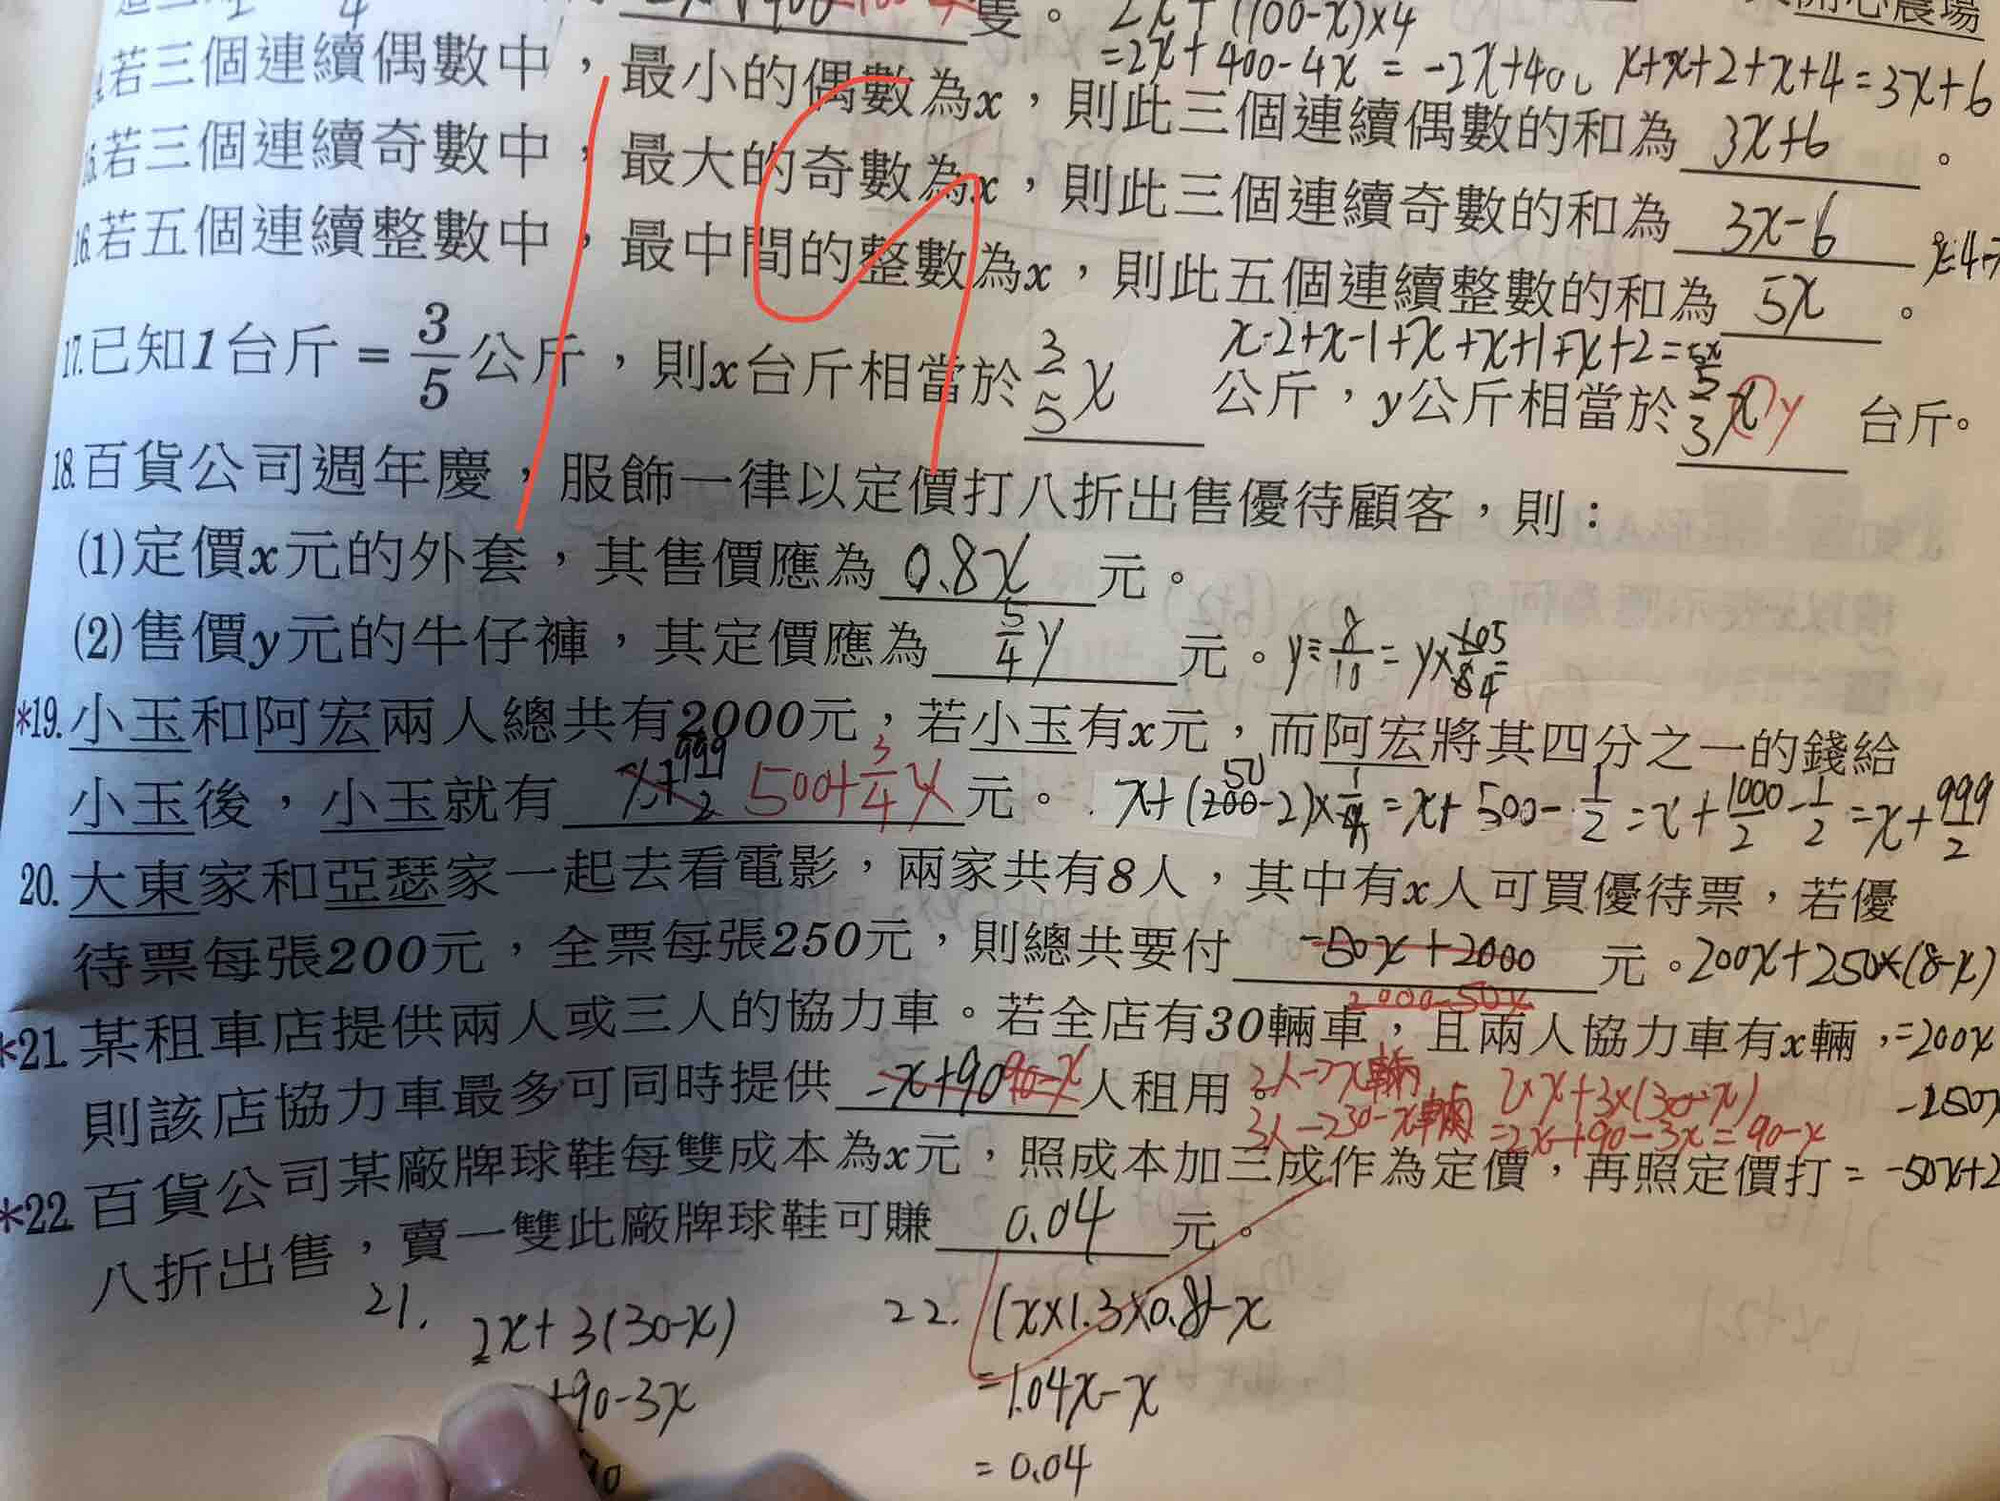 隻。 2x+(100-x)×4
開心農場
=2x+400-4x = -2x+400 x+x+2+x+4=3x+6
若三個連續偶數中，最小的偶數為x，則此三個連續偶數的和為 3x+6 。
15.若三個連續奇數中，最大的奇數為x，則此三個連續奇數的和為 3x-6
16.若五個連續整數中，最中間的整數為x，則此五個連續整數的和為 5x 。
x-2+x-1+x+x+1+x+2=5x
17.已知1台斤=3/5公斤，則x台斤相當於 3/5x 公斤，y公斤相當於 5/3x y 台斤。
18.百貨公司週年慶，服飾一律以定價打八折出售優待顧客，則：
(1)定價x元的外套，其售價應為 0.8x 元。
(2)售價y元的牛仔褲，其定價應為 5/4y 元。y÷8/10=y×105/84
*19.小玉和阿宏兩人總共有2000元，若小玉有x元，而阿宏將其四分之一的錢給
小玉後，小玉就有 x+999/2 500+3/4x 元。 x+(200-2)×1/4=x+500-1/2=x+1000/2-1/2=x+999/2
20.大東家和亞瑟家一起去看電影，兩家共有8人，其中有x人可買優待票，若優
待票每張200元，全票每張250元，則總共要付 -50x+2000 元。200x+250×(8-x)
2000-50x
*21.某租車店提供兩人或三人的協力車。若全店有30輛車，且兩人協力車有x輛，=200x
則該店協力車最多可同時提供 -x+90 90-x 人租用。2人→x輛 2×x+3×(30-x)
-250x
3人→30-x輛 =2x+90-3x=90-x
*22.百貨公司某廠牌球鞋每雙成本為x元，照成本加三成作為定價，再照定價打 =-50x+2
八折出售，賣一雙此廠牌球鞋可賺 0.04 元。
21. 2x+3(30-x)
+90-3x
90
22. (x×1.3×0.8)-x
=1.04x-x
=0.04